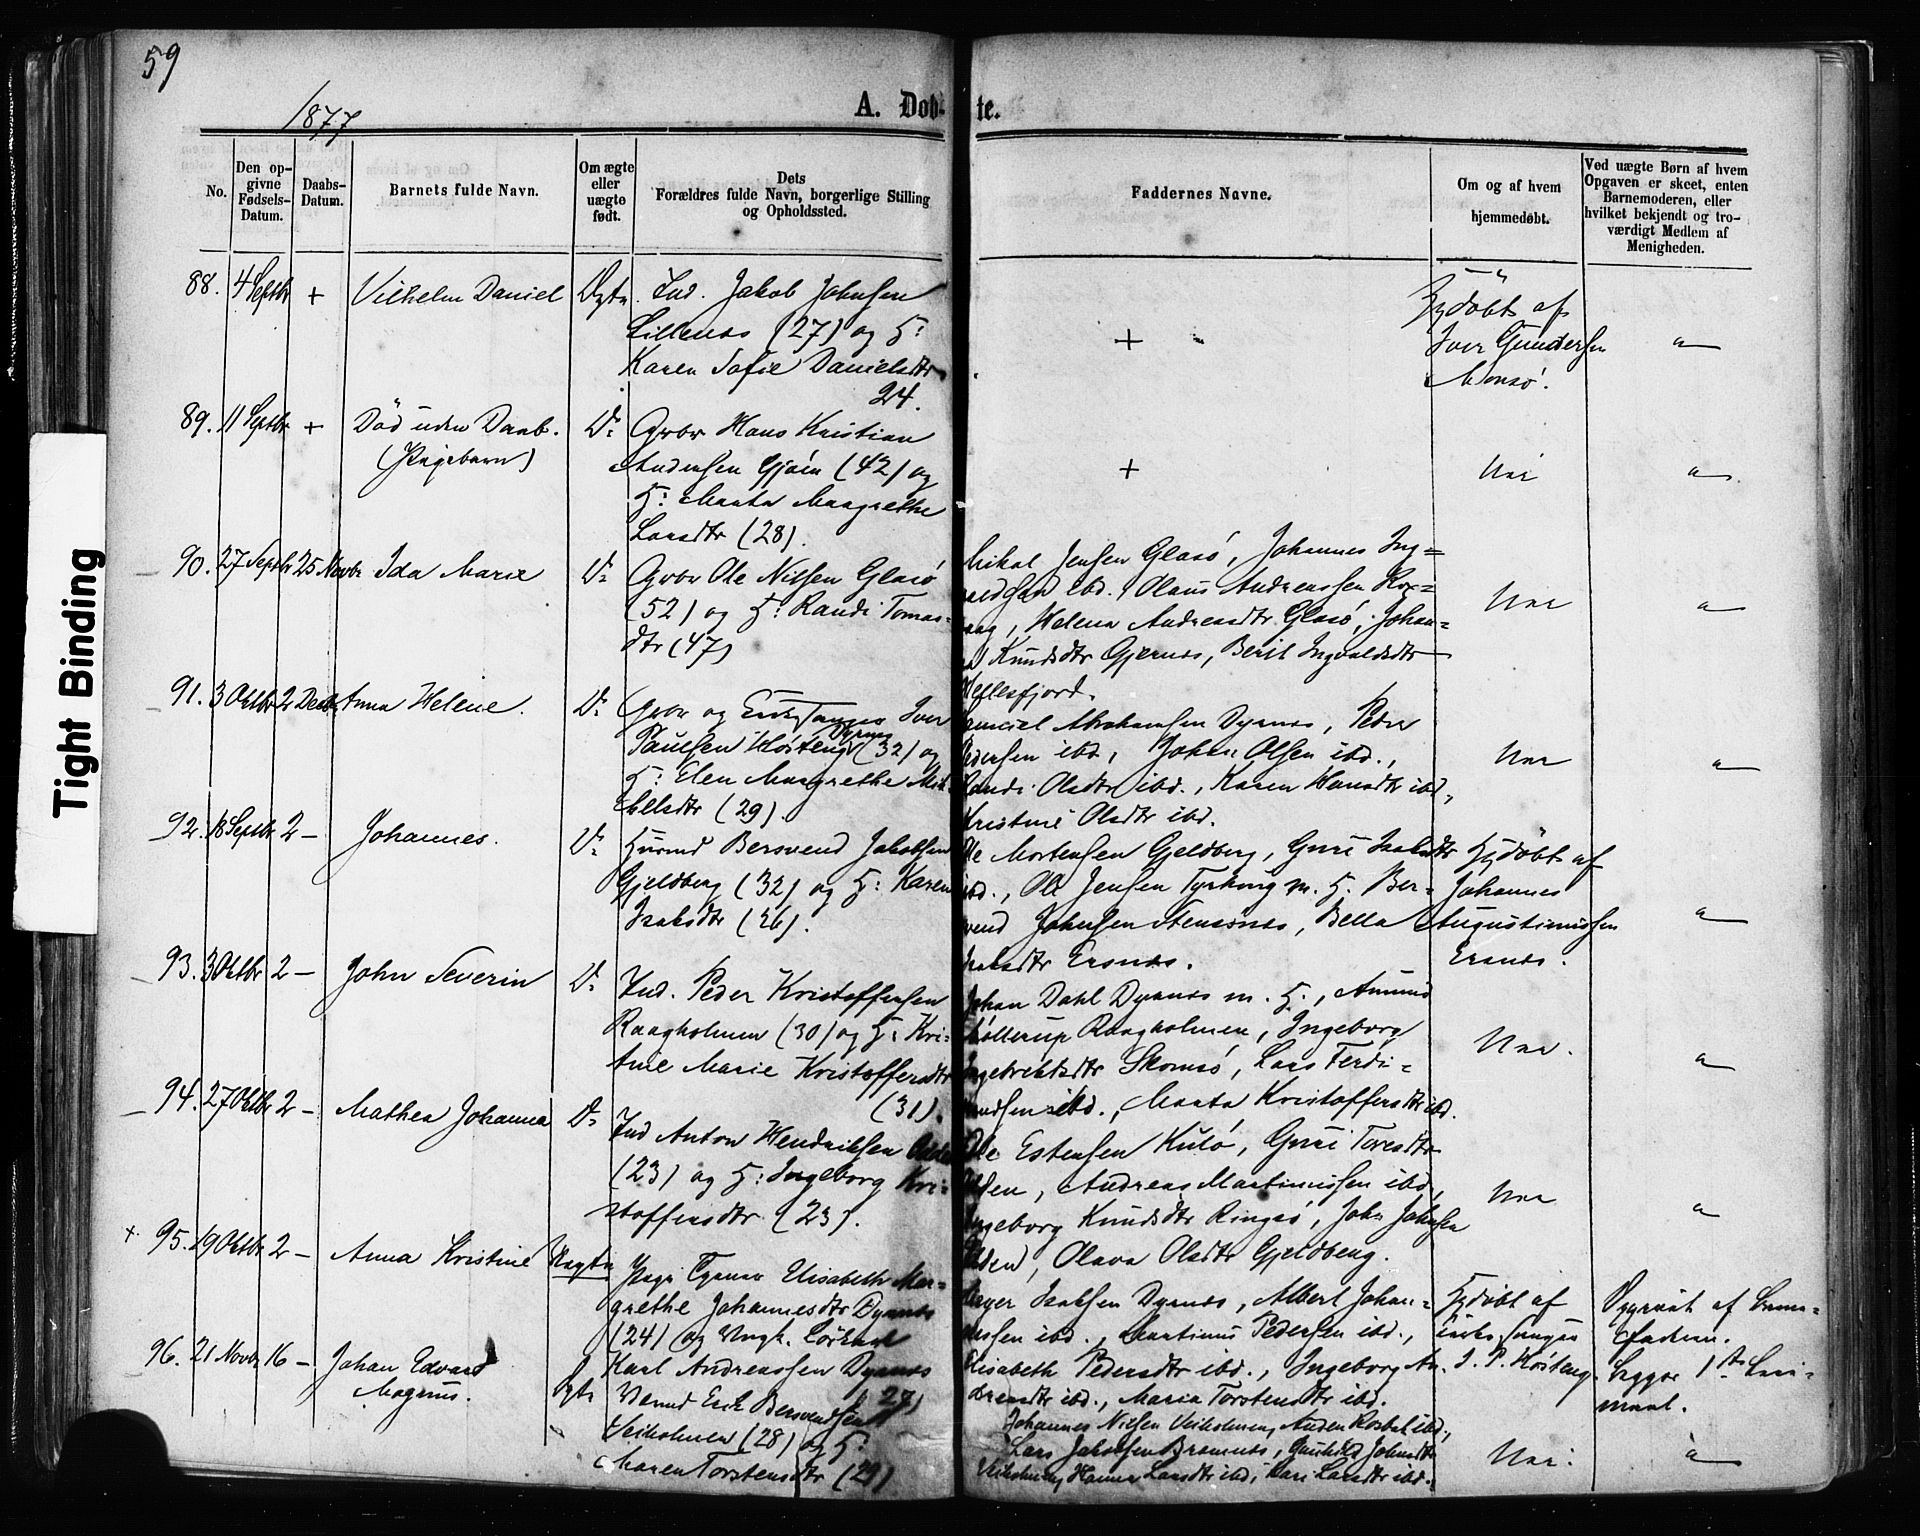 59
1877
A. Døb- te.
No.
Den op-
givne
Fødsels-
Datum.
Daabs-
Datum.
Barnets fulde Navn.
Om ægte
eller
uægte
født.
Dets
Forældres fulde Navn, borgerlige Stilling
og Opholdssted.
Faddernes Navne.
Om og af hvem
hjemmedøbt.
Ved uægte Børn af hvem
Opgaven er skeet, enten
Barnemoderen, eller
hvilket bekjendt og tro-
værdigt Medlem af
Menigheden.
88. 4 Septbr + Vilhelm Daniel Ægte
Ind. Jakob Johnsen
Lillenes (27) og H:
Karen Sofie Danielsdtr
24.
+
Hjdöbt af
Iver Gundersen
"
89. 11 Septbr + Död uden Daab.
(Pigebarn)
D:
Grbr Hans Kristian
Andersen (42) og
H: Marta Margrethe
Larsdtr (28).
+
Nei
"
90. 27 Septbr 25 Novbr Ida Marie D:
Grbr Ole Nilsen Glasø
(52) og H: Randi Tomas-
dtr (47)
Mikal Jensen Glasø, Johannes Ing-
valdsen ibd., Olaus Andreassen Kor-
vaag, Helena Andreasdtr Glasø, Johan-
na Knudsdtr Gjernes, Berit Ingvaldsdtr
Heflesfjord.
Nei
"
91. 3 Oktbr 2 Decbr Anna Helene. D:
Grbr og Iver
Paulsen Høsteng Dyrnes (32) og
H: Elen Margrethe Mik-
kelsdtr (29).
Daniel Abrahamsen Dyrnes, Peder
Pedersen ibd., Johan Olsen ibd.,
Randi Olsdtr ibd., Karen Hansdtr ibd.,
Kristine Olsdtr ibd.
Nei
"
92. 18 Septbr 2 — Johannes. D:
Husmd Bersvend Jakobsen
Gjeldberg (32) og H: Karen
Isaksdtr (26).
Ole Mortensen Gjeldberg, Guri Isaksdtr
ibd., Ole Jensen Tyrhaug m. H. Ber-
svend Johnsen Stensønes, Bella
Isaksdtr Ersnes.
Hjdöbt af
Johannes
Augustinussen
Ersnes.
"
93. 3 Oktbr 2 — John Severin D:
Ind. Peder Kristoffersen
Raagholmen (30) og H: Kri-
stine Marie Kristoffersdtr
(31).
Johan Dahl Dyrnes m. H., Amund
Møllerup Raagholmen, Ingeborg
Ingebrektsdtr Skomsø, Lars Ferdi-
nandsen ibd., Marta Kristoffersdtr ibd.
Nei.
"
94. 27 Oktbr 2 — Mathea Johanna D:
Ind Anton Hendriksen Odden
(23) og H: Ingeborg Kri-
stoffersdtr (23).
Ole Estensen Kulø, Guri Toresdtr
Odden, Andreas Martinussen ibd.,
Ingeborg Knudsdtr Ringsø, John Johnsen
Odden, Olava Olsdtr Gjeldberg.
Nei
"
+. 95. 19 Oktbr 2 — Anna Kristine Uægte
Pige Elisabeth Mar-
grethe Johannesdtr Dyrnes
(24) og Ungk.
Karl Andreassen Dyrnes
(27)
Mayer Isaksen Dyrnes, Albert Johan-
nessen ibd., Martinus Pedersen ibd.,
Elisabeth Pedersdtr ibd., Ingeborg An-
dreasdtr ibd., Maria Torstensdtr ibd.
Hjdöbt af
Kirkesanger
I. P. Høsteng.
Opgivet af Barne-
faderen.
Begges 1ste Leier-
maal.
96. 21 Novbr 16 — Johan Edvard
Magnus.
Ægte
Erik Bersvendsen
Veiholmen (28) og H:
Maren Torstensdtr (29)
Johannes Nilsen Veiholmen, ibd.,
Lars Jakobsen Bremnes, Gunhild Johnsdtr
Veiholmen, Hanna Larsdtr ibd., Kari Larsdtr ibd.
Nei.
"
Tight Binding